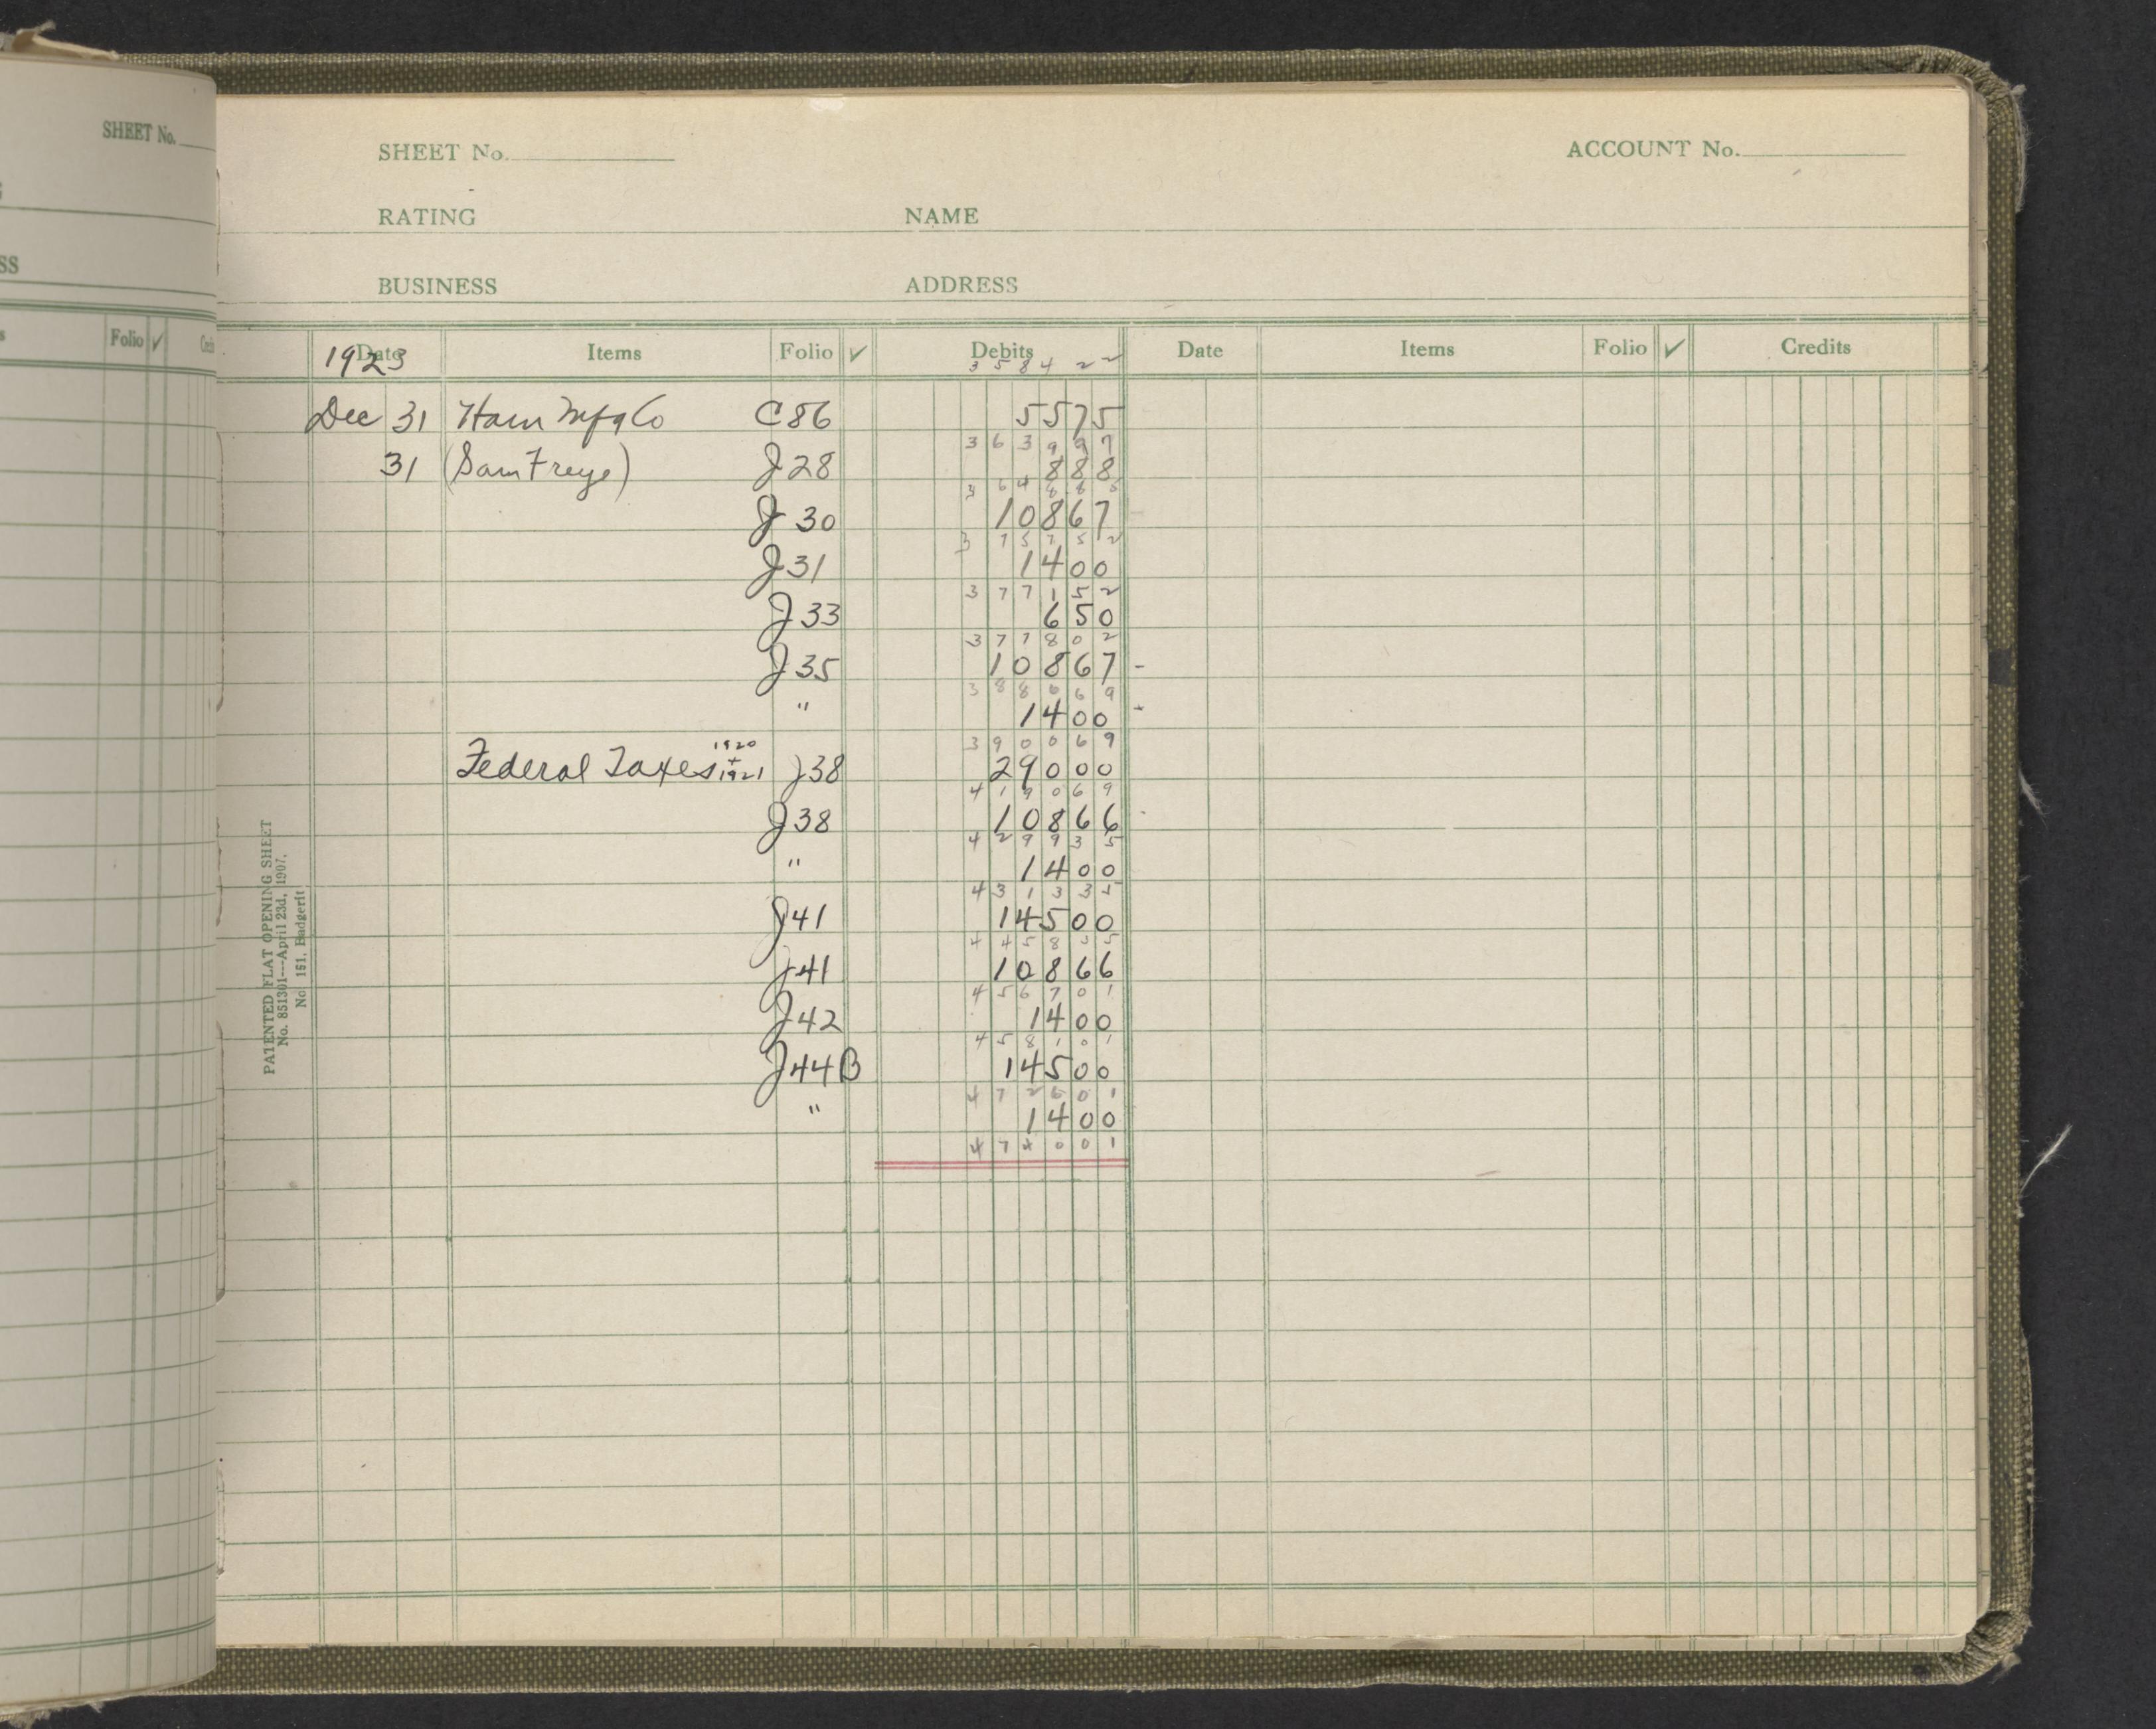 SHEET No.
SS
s Folio ✓
SHEET No. ACCOUNT No.
RATING NAME
BUSINESS ADDRESS
Date Items Folio ✓ Debits Date Items Folio ✓ Credits
1923 3584 22
Dec 31 Ham Mfg Co C86 5575
363997
31 (Sam Freye) J28 888
364885
J30 10867
375752
J31 1400
377152
J33 650
377802
J35 10867 -
388669
" 1400 -
390069
Federal Taxes 1920 + 1921 J38 29000
419069
J38 10866
429935
" 1400
431335
J41 14500
445835
J41 10866
456701
J42 1400
458101
J44B 14500
472601
" 1400
474001
PATENTED FLAT OPENING SHEET
No. 851301---April 23d, 1907.
No 151, Badgerit